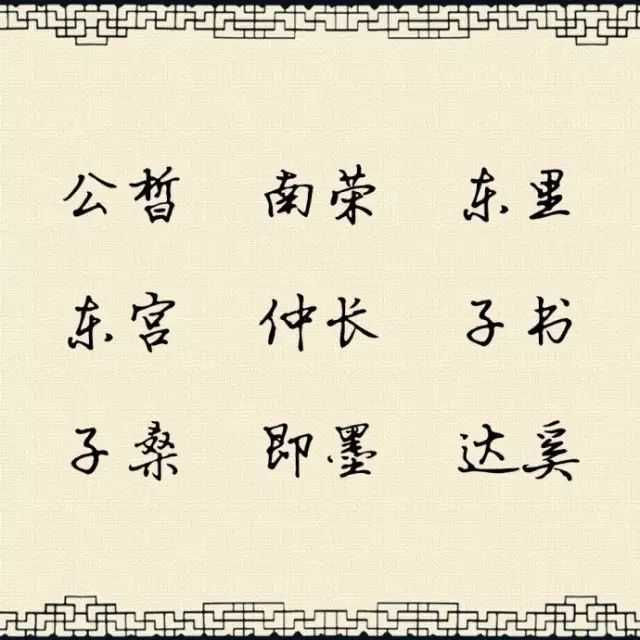 公皙 南荣 东里
东宫 仲长 子书
子桑 即墨 达奚